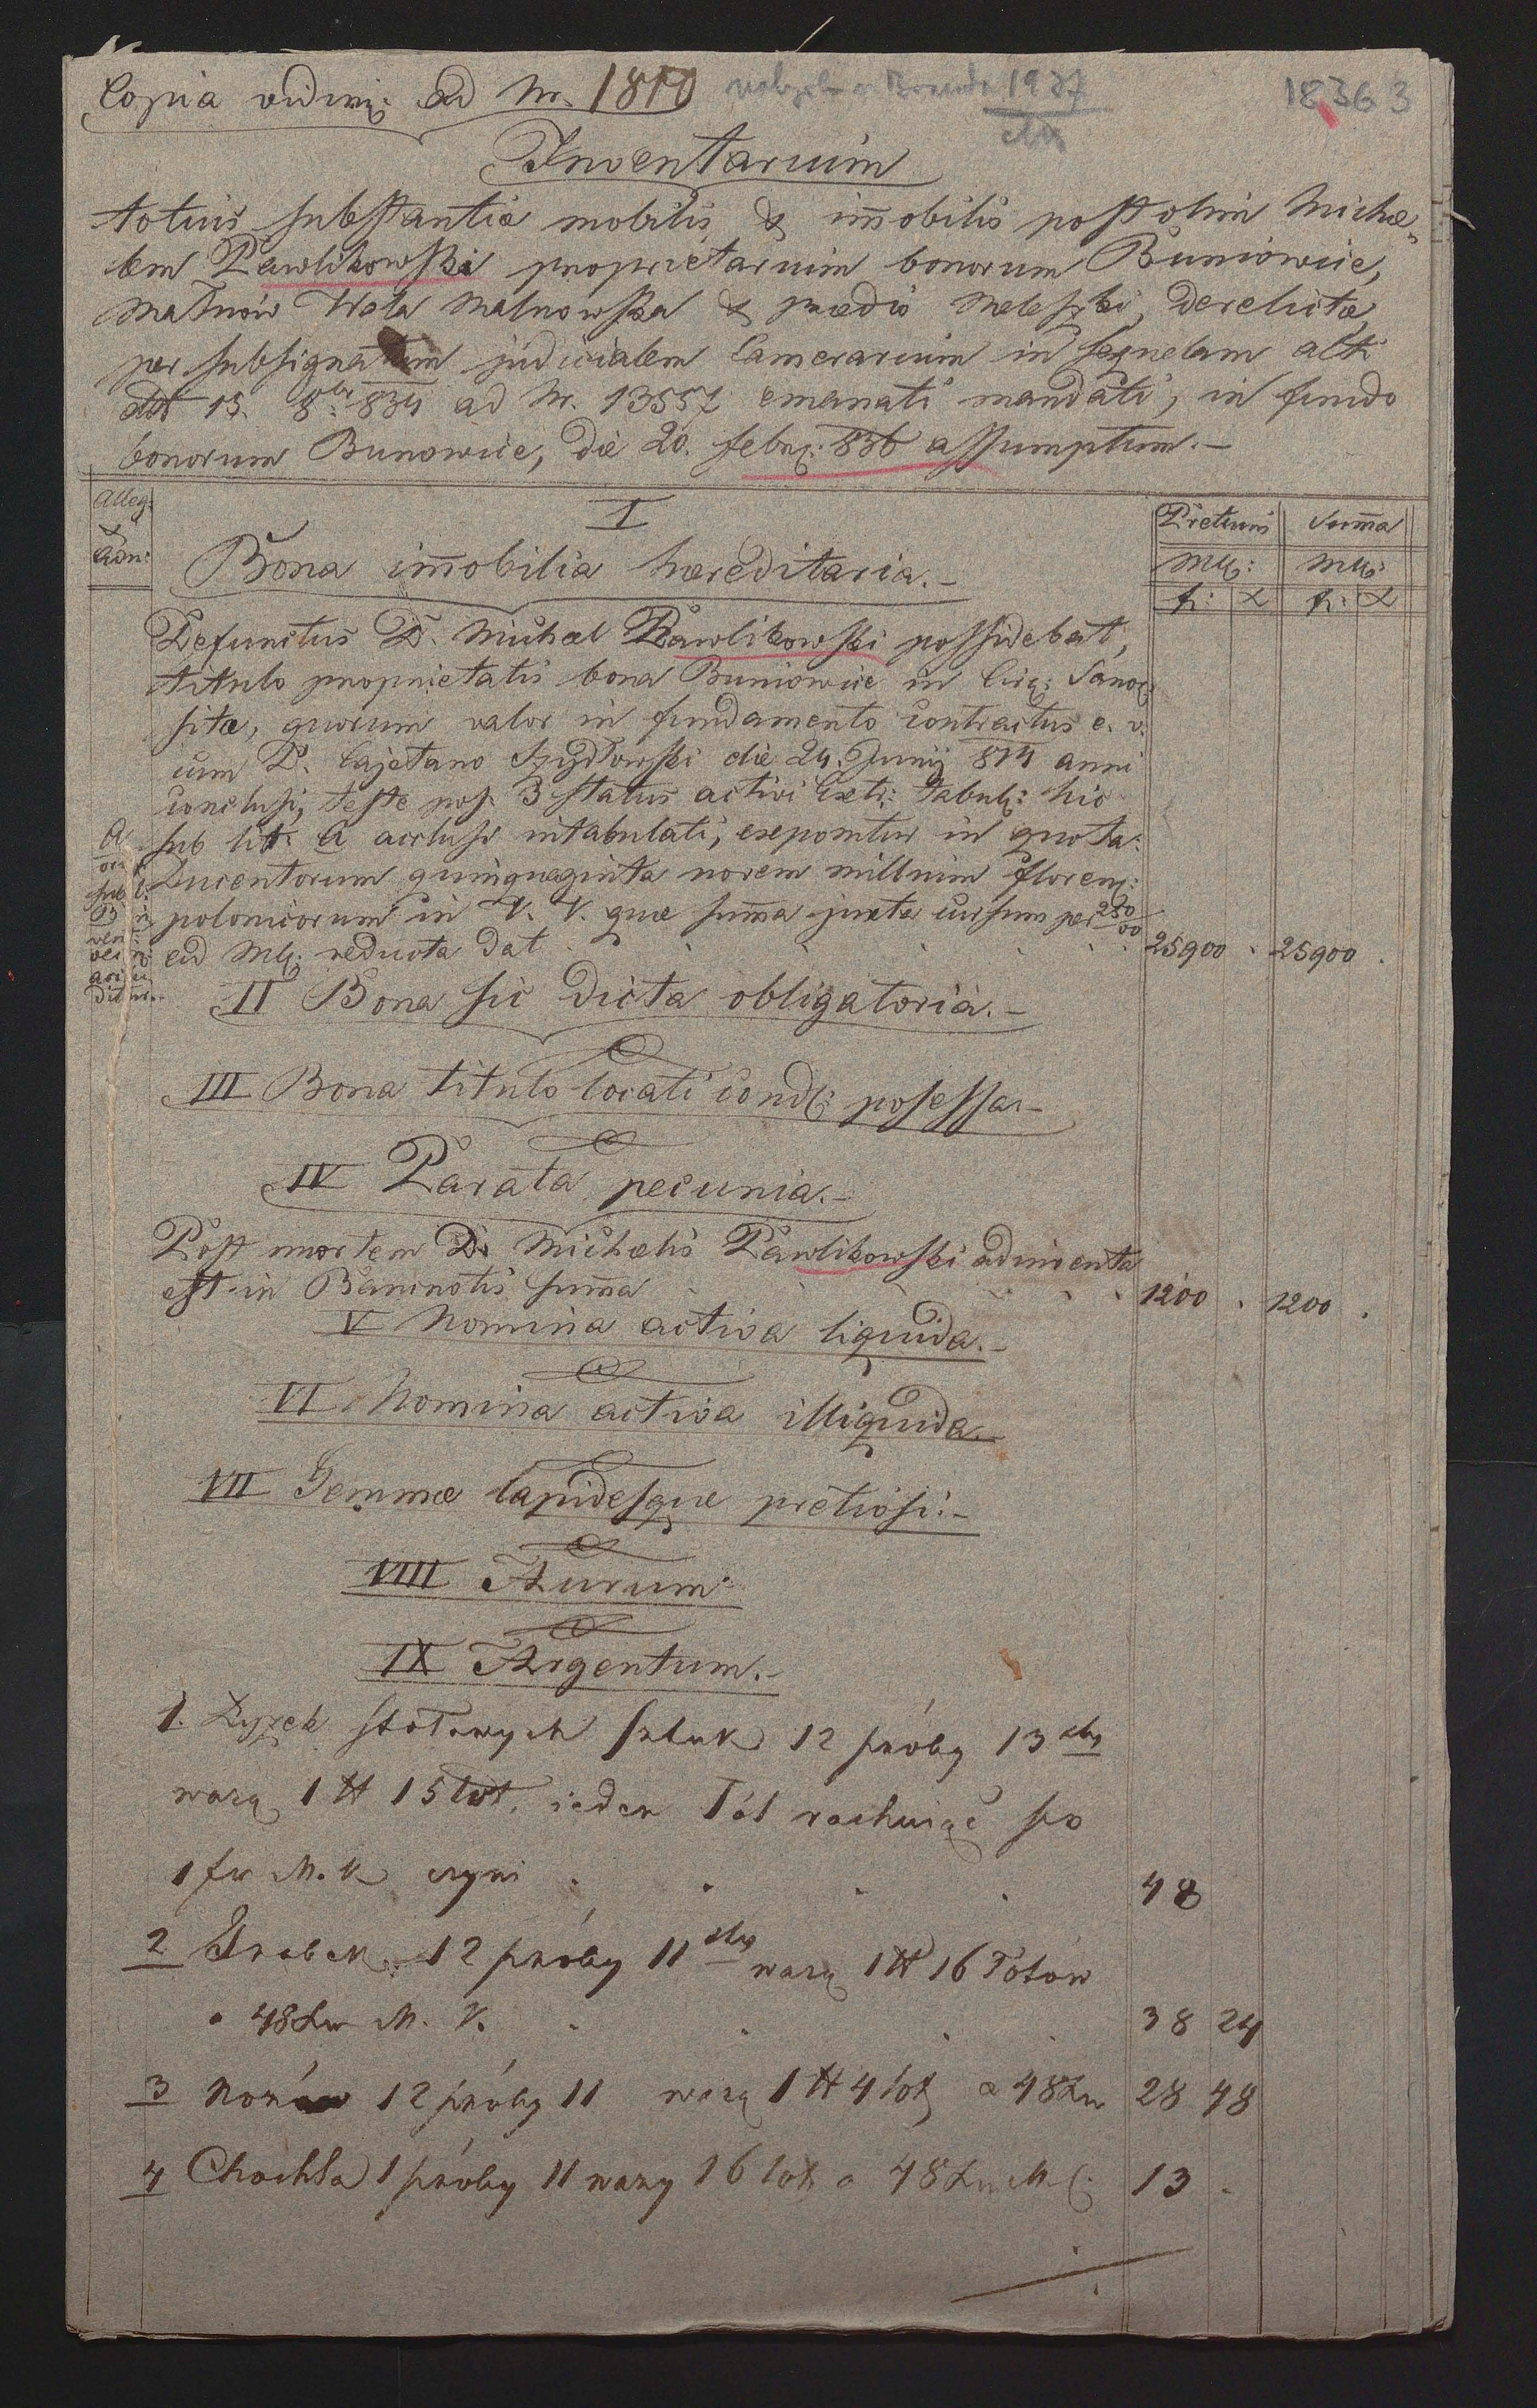 Copia vidim: ad Nr. 1810 1937
18363
Inventarium
totius substantiæ mobilis & im̄obilis post olim Micha„
lem Pawlikowski proprietarium bonorum Buniowice,
Małnów Wola Malnowska & prædio derelictæ,
per subsignatum judicialem Camerarium in sequelam alti
ddt 13. 8br 834 ad Nr. 13557 emanati mandati, in fundo
bonorum Bunowice, die 20. febr: 836 assumptum.–
Alleg:
I
Pretium Sum̄a
Bona im̄obilia hæreditaria.–
MK: MK:
fr: x fr: x
Defunctus D. Michael Pawlikowski possidebat,
titulo proprietatis bona Buniowice in Circ: Sanoc:
sita, quorum valor in fundamento contractus e. v.
cum D. Cajetano Szydłowski die 24. Junij 814 anni
conclusi, teste pos. 3 status activi Ext: tabul: hic
sub lit: A acclusi intabulati, exponitur in quota
A
Ducentorum quinquaginta novem millium floren:
polonicorum in V. V. quæ sum̄a juxta cursum per 250/00
eid MK: reducta dat 25900 . 25900 .
II Bona sic dicta obligatoria.–
III Bona titulo locati cond: possessa.–
IV Parata pecunia.–
Post mortem D. Michælis Pawlikowski adinventa
est in Bancnotis sum̄a 1200 . 1200 .
V Nomina activa liquida.–
VI Nomina activa illiquida.–
VII Gemmæ lapidesque pretiosi.–
VIII Aurum
IX Argentum.–
1. Łyżek stołowych sztuk 12 próby 13
ważą 1 ℔ 15 łot. ieden łót rachuiąc po
1 fr M. K czyni 48
2 Grabek 12 próby 11 ważą 1 ℔ 16 łotów
a 48 kr M. K. 38 24
3 Nożów 12 próby 11 ważą 1 ℔ 4 łot a 48 kr 28 48
4 Chochla 1 próby 11 waży 16 łot a 48 kr M 13 .